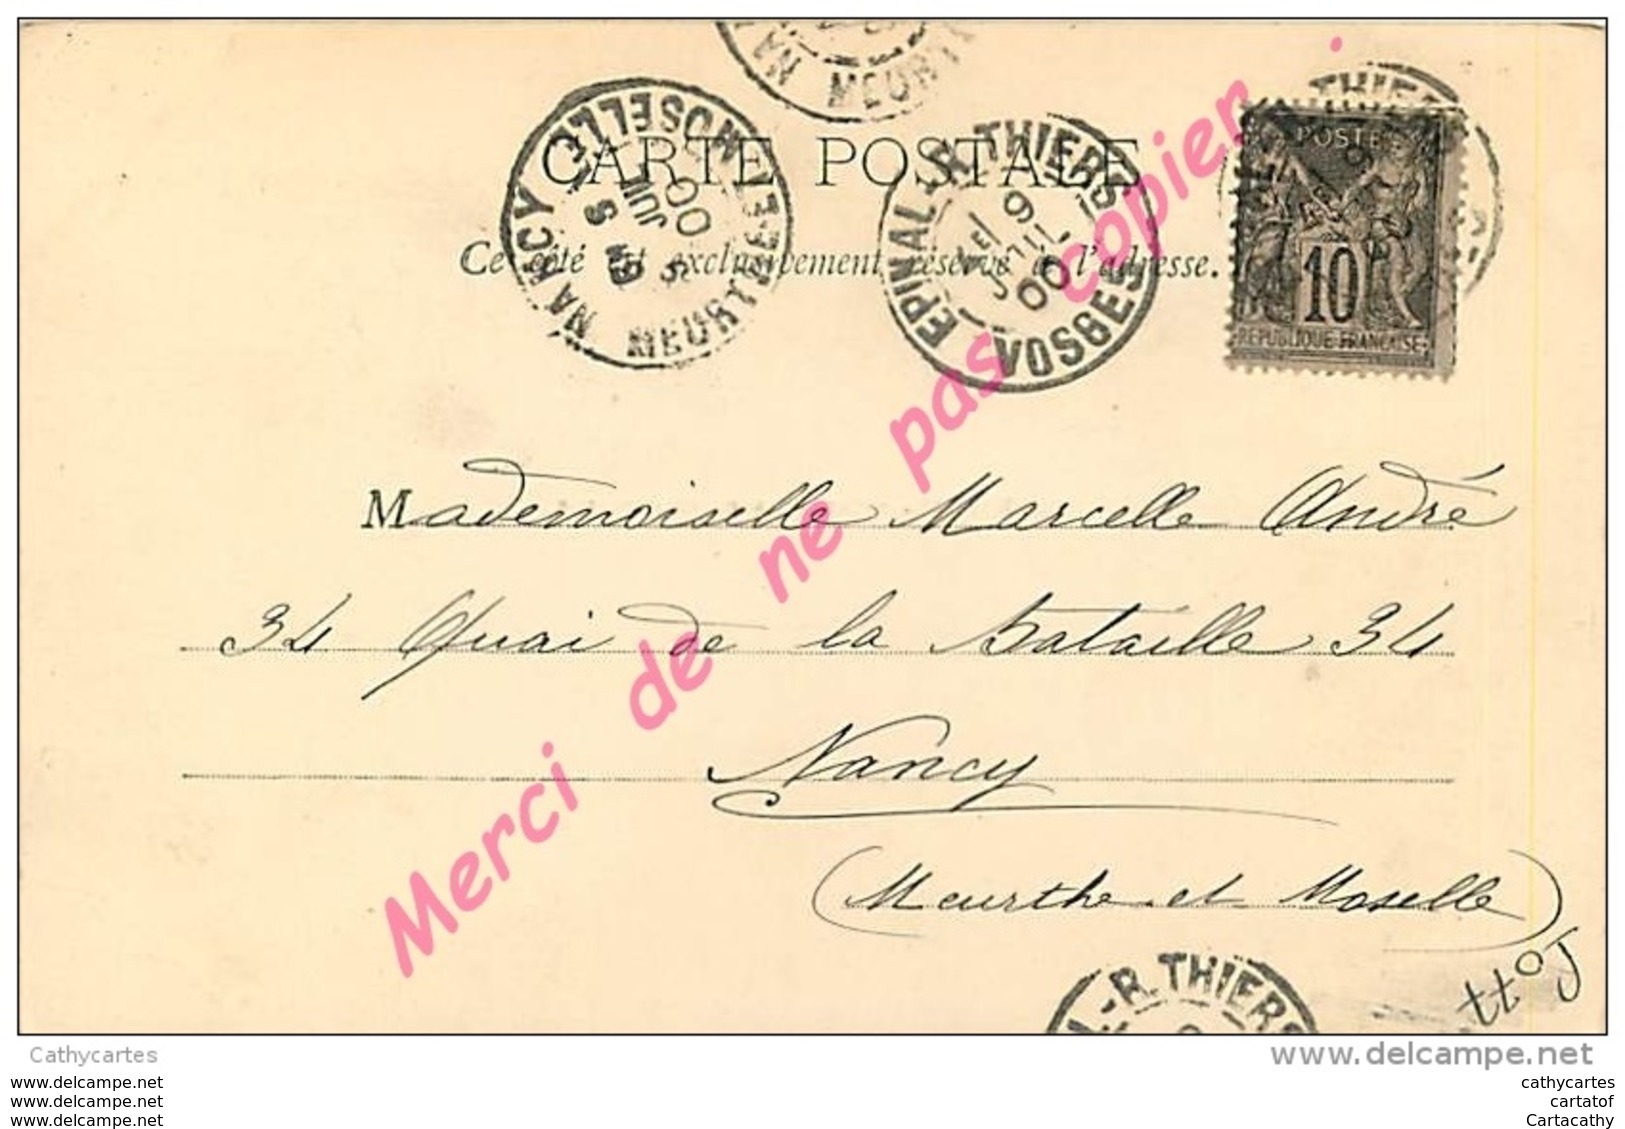 CARTE POSTALE
Ce côté est exclusivement réservé à l'adresse.
NANCY MEURTHE ET MOSELLE
JUIL
00
EPINAL-R. THIERS
9
JUIL
00
VOSGES
R. THIERS
POSTES
10
REPUBLIQUE FRANÇAISE
Merci de ne pas copier
Mademoiselle Marcelle André
34 Quai de la Bataille 34
Nancy
(Meurthe et Moselle)
L-R. THIERS
Cathycartes
www.delcampe.net
www.delcampe.net
www.delcampe.net
www.delcampe.net
cathycartes
cartatof
Cartacathy